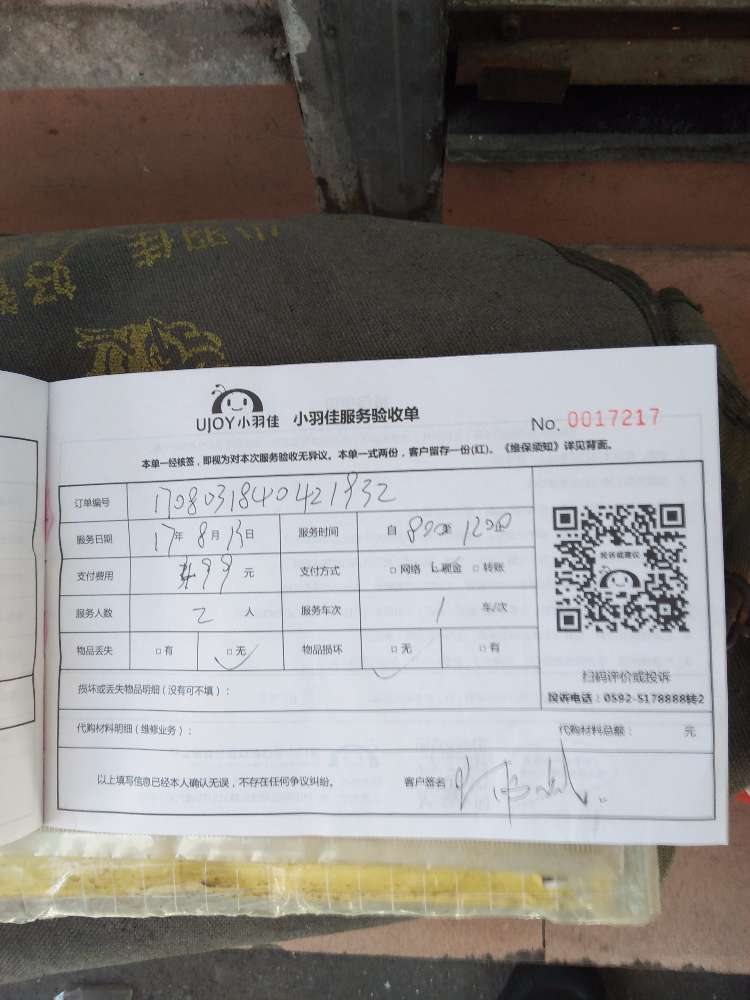 UJOY小羽佳 小羽佳服务验收单 No. 0017217
本单一经核签，即视为对本次服务验收无异议。本单一式两份，客户留存一份(红)。《维保须知》详见背面。
订单编号 1708031840421932
服务日期 17年 8月 13日 服务时间 自 800至 1200止
支付费用 499 元 支付方式 □网络 □现金 □转账
服务人数 2 人 服务车次 1 车/次
物品丢失 □有 □无 物品损坏 □无 □有
投诉或建议
扫码评价或投诉
投诉电话：0592-5178888转2
损坏或丢失物品明细（没有可不填）：
代购材料明细（维修业务）： 代购材料总额： 元
以上填写信息已经本人确认无误，不存在任何争议纠纷。 客户签名：